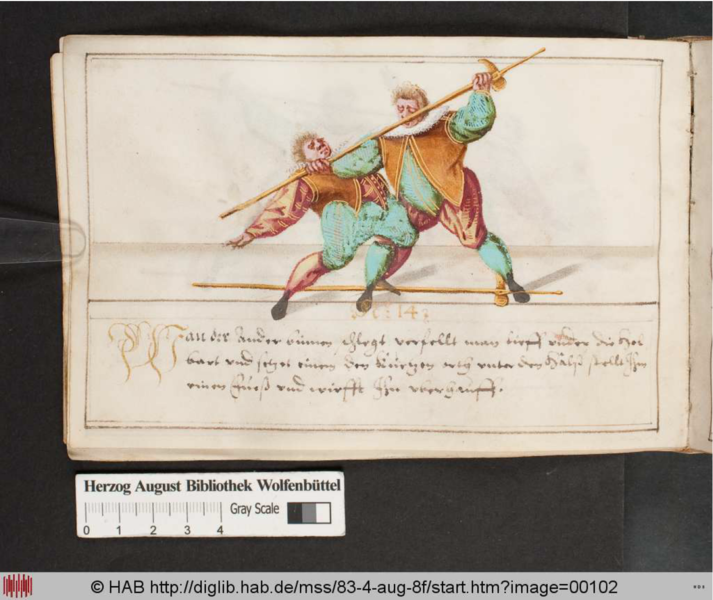 No: 142
Wan der Ander oünen schlegt verfellt man tieff vnder die Hel
bart vnd setzet einen den kürtzen orth vnter den Halß stellt Ihm
einen fueß vnd wirfft Ihn vberhauffs.
Herzog August Bibliothek Wolfenbüttel
Gray Scale
0 1 2 3 4
© HAB http://diglib.hab.de/mss/83-4-aug-8f/start.htm?image=00102